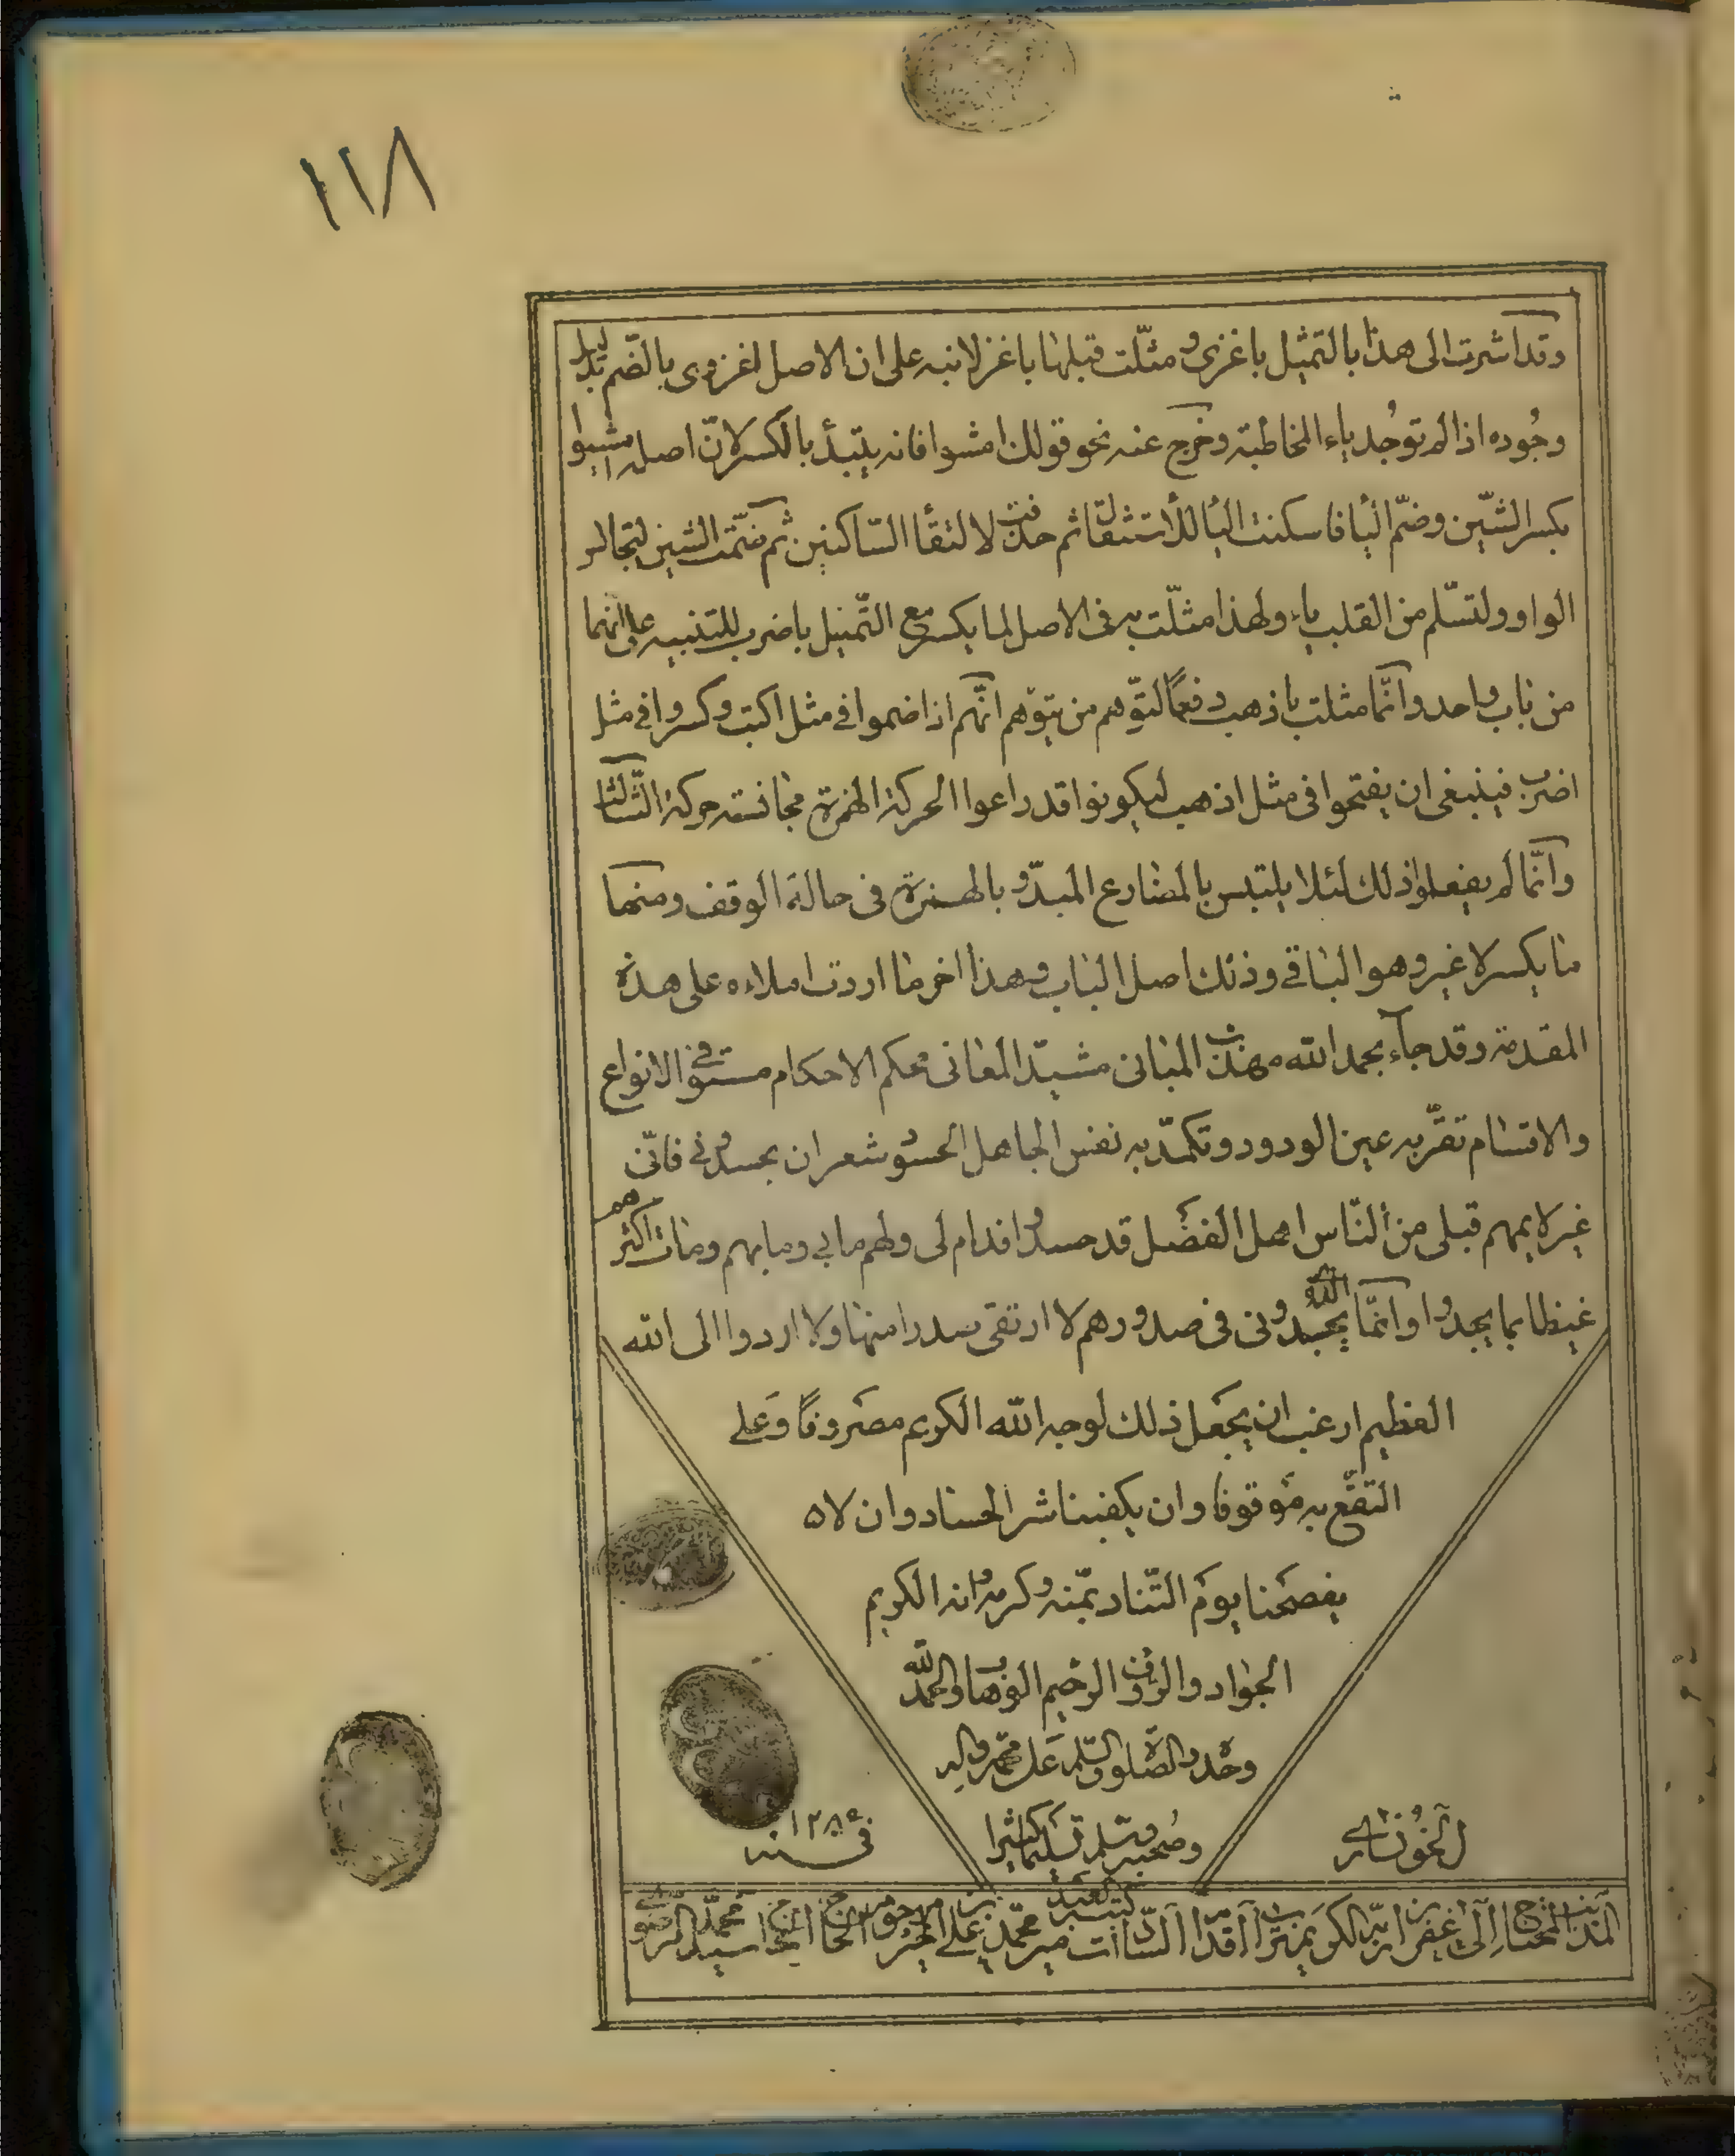 ١١٨
وقد اشرت الى هذا بالتمثيل باغزى و مثّلت قبلها باغز لانبه على ان الاصل اغزوى بالضّم بدليل
وجُوده اذا لم توجُد ياء المخاطبة وخرج عنه نحو قولك امشوا فانه يبتدأ بالكسر لانّ اصله امشيوا
بكسر الشّين وضمّ اليا فاسكنت اليا للأستثقال ثم حذفت لالتقأ السّاكنين ثم ضمّت الشين لتجانس
الواو ولتسّلم من القلب ياء ولهذا مثّلت به فى الاصل لما يكسر مع التّمثيل باضرب للتنبيه على انّهما
من باب واحد وانّما مثلت باذهب دفعًا لتوّهم من يتوّهم انّهم اذا ضموا فى مثل اكتب وكسروا فى مثل
اضرب فينبغى ان يفتحوا فى مثل اذهب ليكونوا قد راعوا الحركة الهمزة مجانسته حركة الثّالث
وانّما لم يفعلوا ذلك لئلا يلتبس بالمضارع المبدّو بالهمزة فى حالة الوقف ومنها
ما يكسر لا غير وهو الباقے وذلك اصل الباب وهذا اخر ما اردت املاءه على هذه
المقدمة وقد جاء بحمد الله مهذب المبانى مشيّد المعانى محكم الاحكام مستوفى الانواع
والاقسام تقرّ به عين الودود وتكمدّ به نفس الجاهل الحسود شعر ان يحسدونے فانّى
غير لايمهم قبلى من النّاس اهل الفضل قد حسدوا فدام لى ولهم ما بى وما بهم ومات اكثرهم
غيظا بما يجدوا وانّما الّذى يجدونى فى صدورهم لا ارتقى صدرا منها ولا اردوا الى الله
العظيم ارغب ان يجعل ذلك لوجه الله الكريم مصروفًا وَعلے
النّفع به موقوفا وان يكفينا شر الحساد وان لا
يفضحنا يوم التّناد بمّنه وكرمه انه الكريم
الجواد والرؤف الرحيم الوهاب والحمد لله
وحده والصّلوة والسّلم عَلى محمّد واله
وصحبه وسلّم تسليما كثيرا
فى سنه ١٢٨٥
الخونسارى
كتبه العبد
المذنب المحتاج الى غفران ربّه الكريم تراب اقدام السّادات مير محمّد علے بن المرحوم الحاج سيد محمّد الرضوى